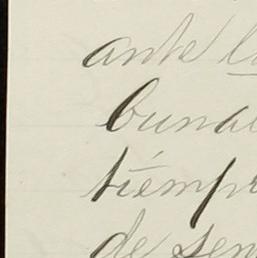 ante l
bunal
tiemp
de sen